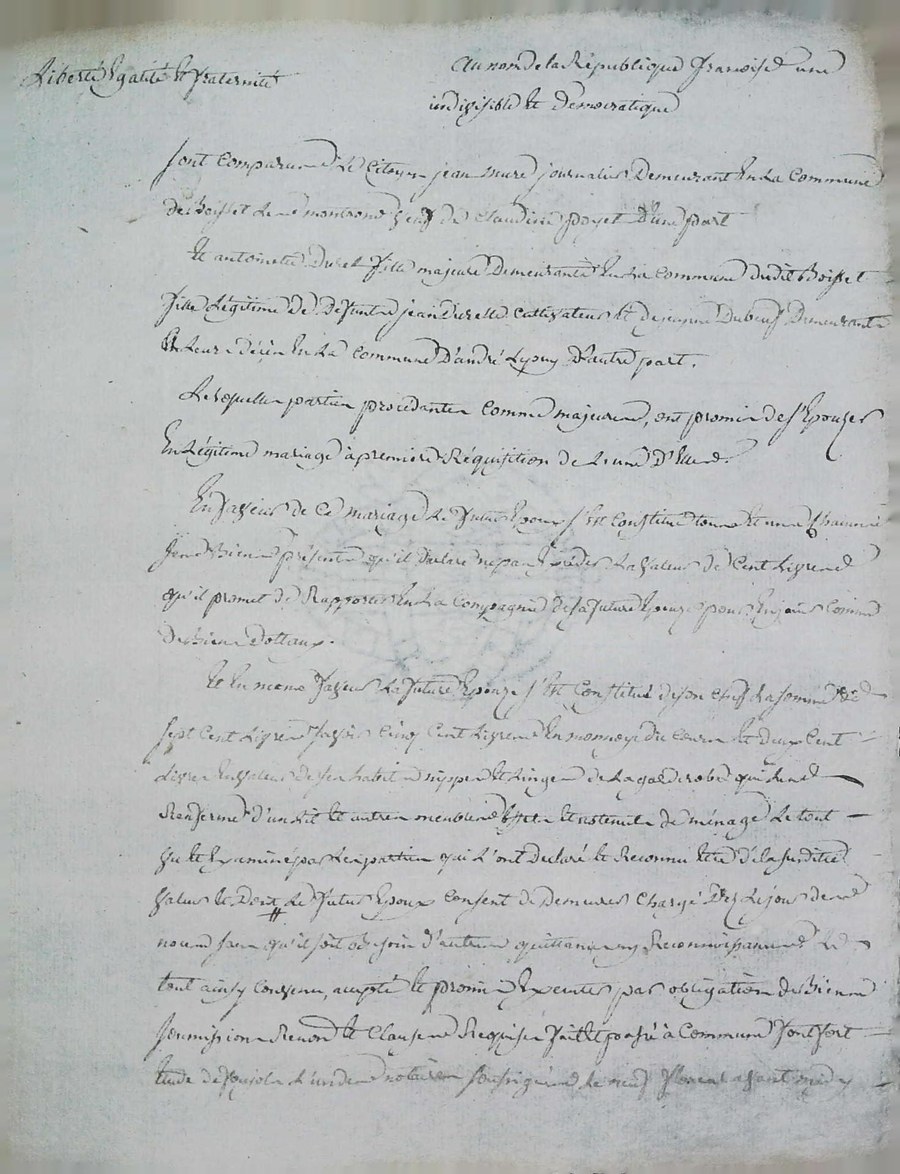 Liberté Egalité Et fraternité
Au nom de la République françoise une
indivisible Et démocratique
sont comparus Le Citoyen jean mure journalier Demeurant En La Commune
de Boisset Les montrond veuf de Claudine poyet D'une part
Et antoinette Duret fille majeure Demeurante En La Commune dudit Boisset
fille Légitime de défunts jean Duret Cultivateur Et de jeanne Dubeuf Demeurants
En Leurs décès En La Commune D'andré Lepuy D'autre part.
Lesquelles parties procédantes comme majeures, ont promis de s'Epouzer
En Légitime mariage à première Réquisition de L'une D'Elles.
En faveur de Ce mariage Le futur Epoux s'Est Constitué tous Et uns Chacuns
ses Biens présents qu'il déclare ne pas Excéder La valeur de Cent Livres
qu'il promet de Rapporter En La Compagnie de sa future Epouze pour En jouir Comme
de Biens Dottaux.
Et En meme faveur La future Epouze s'Est Constitué de son Chef La somme de
sept Cent Livres savoir Cinq Cent Livres En monnoye du Cours Et deux Cent
Livres En valeur de ses habits nippes Et Linges de La garderobe qui Les
Renferme d'un Lit Et autres meubles Effets Et ustenciles de ménage Le tout
vu Et Examiné par Les parties qui L'ont Déclaré Et Reconnu Etre de la susditte
valeur Et Dont Le futur Epoux Consent de Demeurer Chargé Dez Le jour des
noces sans qu'il soit Besoin d'autres quittances ny Reconnoissances Le
tout ainsy Convenu, accepté Et promis Exécuter par obligation de Biens
soumissions Renon. Et Clauses Requises fait Et passé à Commune fontfort
Etude de L'un des notaires soussignés Le neuf floréal avant midy